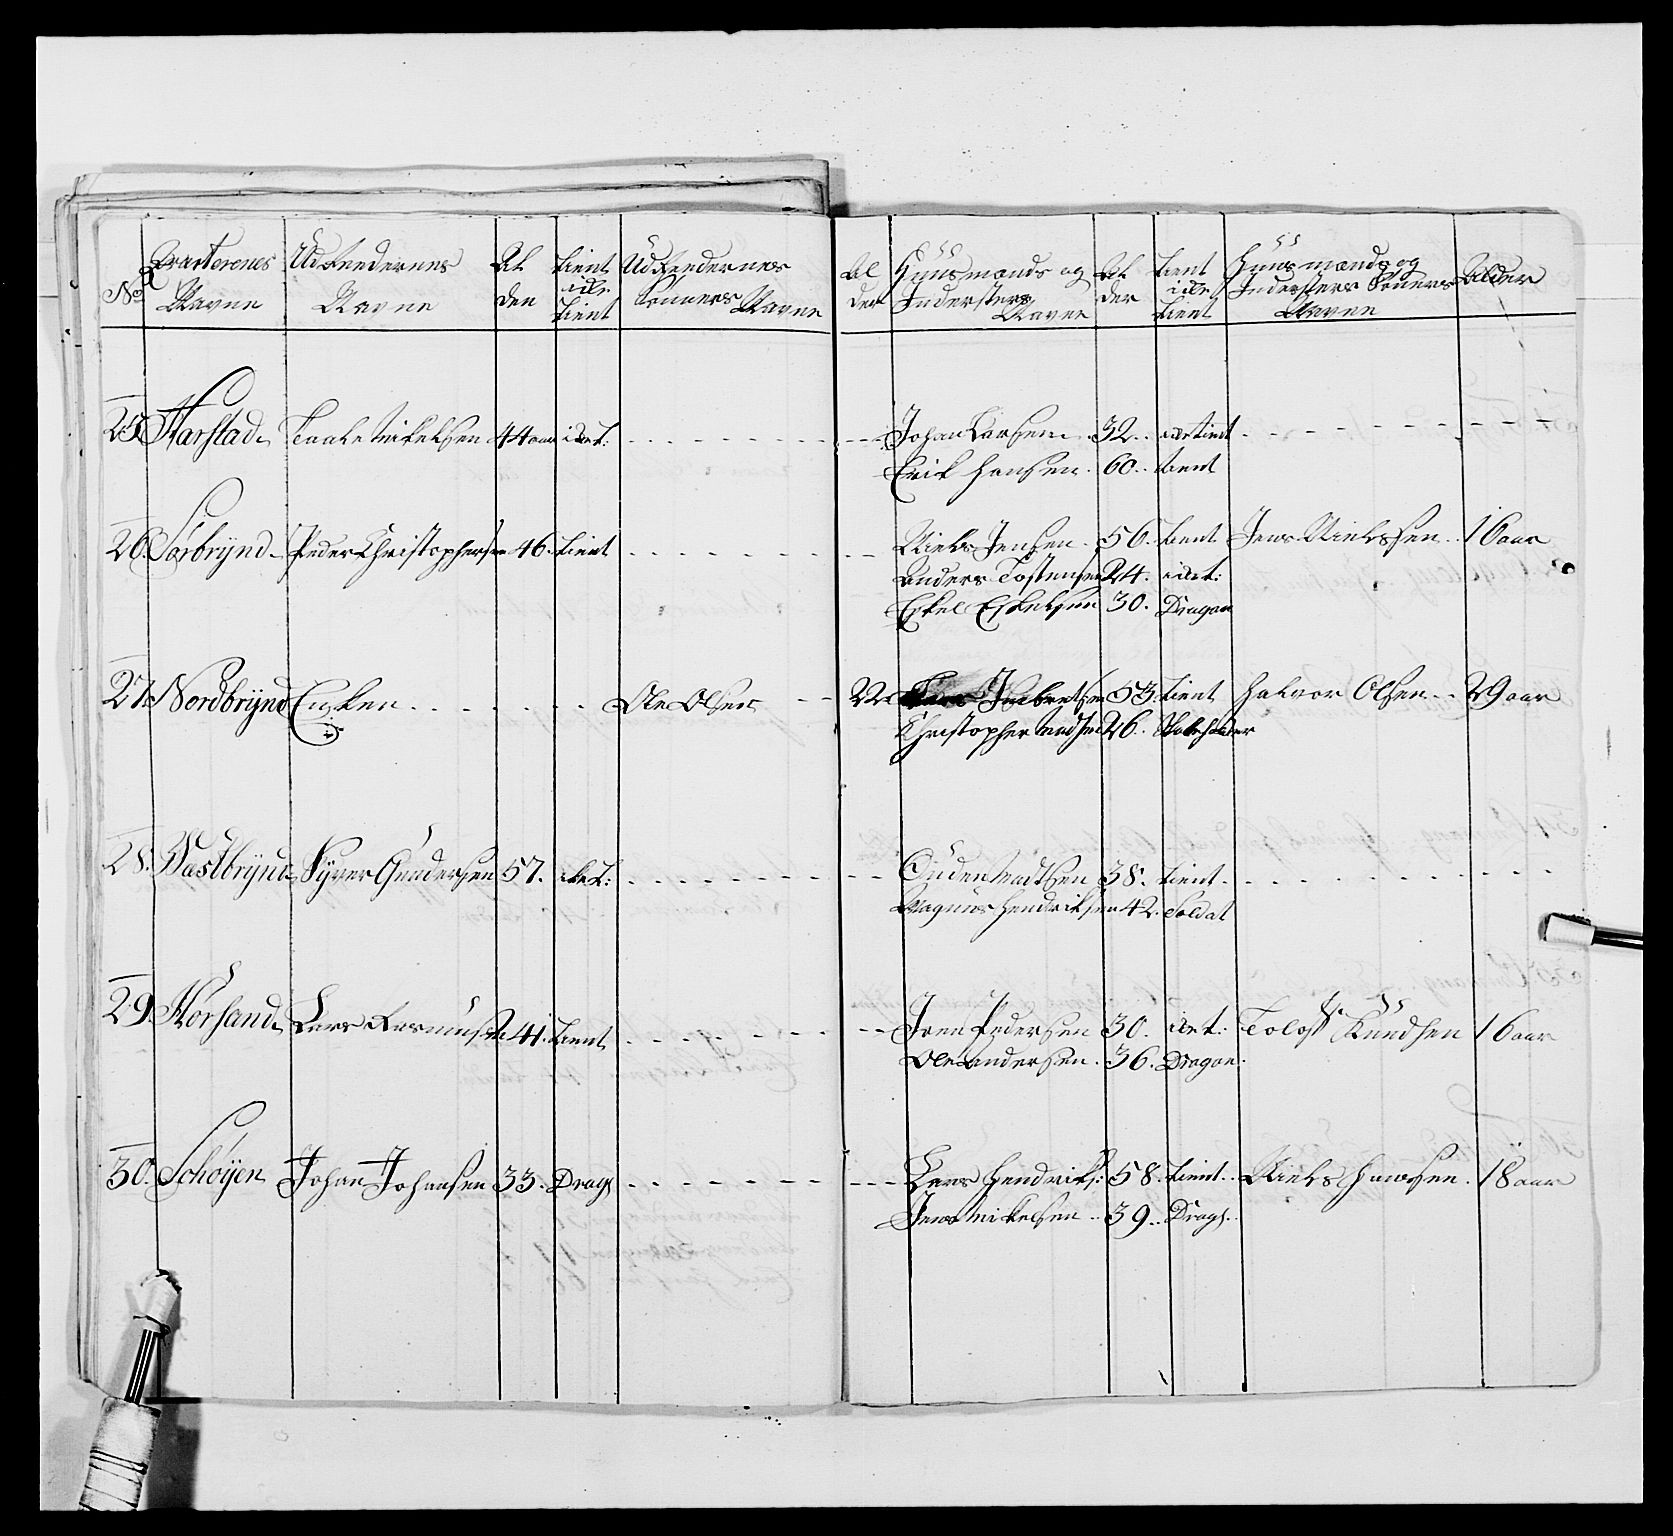 No Qvarterenes Navne Udreedernes Navne Al der tient icke tient Udreedernes Sönners Navne Al der Huusmænds og Indersters Navne Al der tient icke tient Huusmænds og Indersters Sönners Navne Alder
25 Harstad Taale Mikelsen 44 aar ictt: Johan Larsen 32. tient
Erik Hansen. 60. tient
26. Sörbrÿnd Peder Christophersen 46. tient Niels Jensen. 56. tient Jens Nielssen. 16 aar
Anders Tostensen 24. ictt:
Eskel Eskelsen 30. Dragon
27. Nordbrÿnd Enken Ole Olsen 22 Ingebretsen 53. tient Halvor Olsen 29 aar
Christopher Madsen 26.
28. Wastbrÿnd Sÿver Gundersen 57. ictt: Auden Madtsen 38. tient
Magnus Hendriksen 42. Soldat
29. Horsand Lars Rasmus: 41. tient Joen Pedersen 30. ictt: Knudsen 16 aar
Ole Andersen. 36. Dragon:
30. Schöÿen Johan Johansen 33. Drag: Lars Hendriks: 58. tient Niels Hansen. 18 aar
Jens Mikelsen 39. Drag: